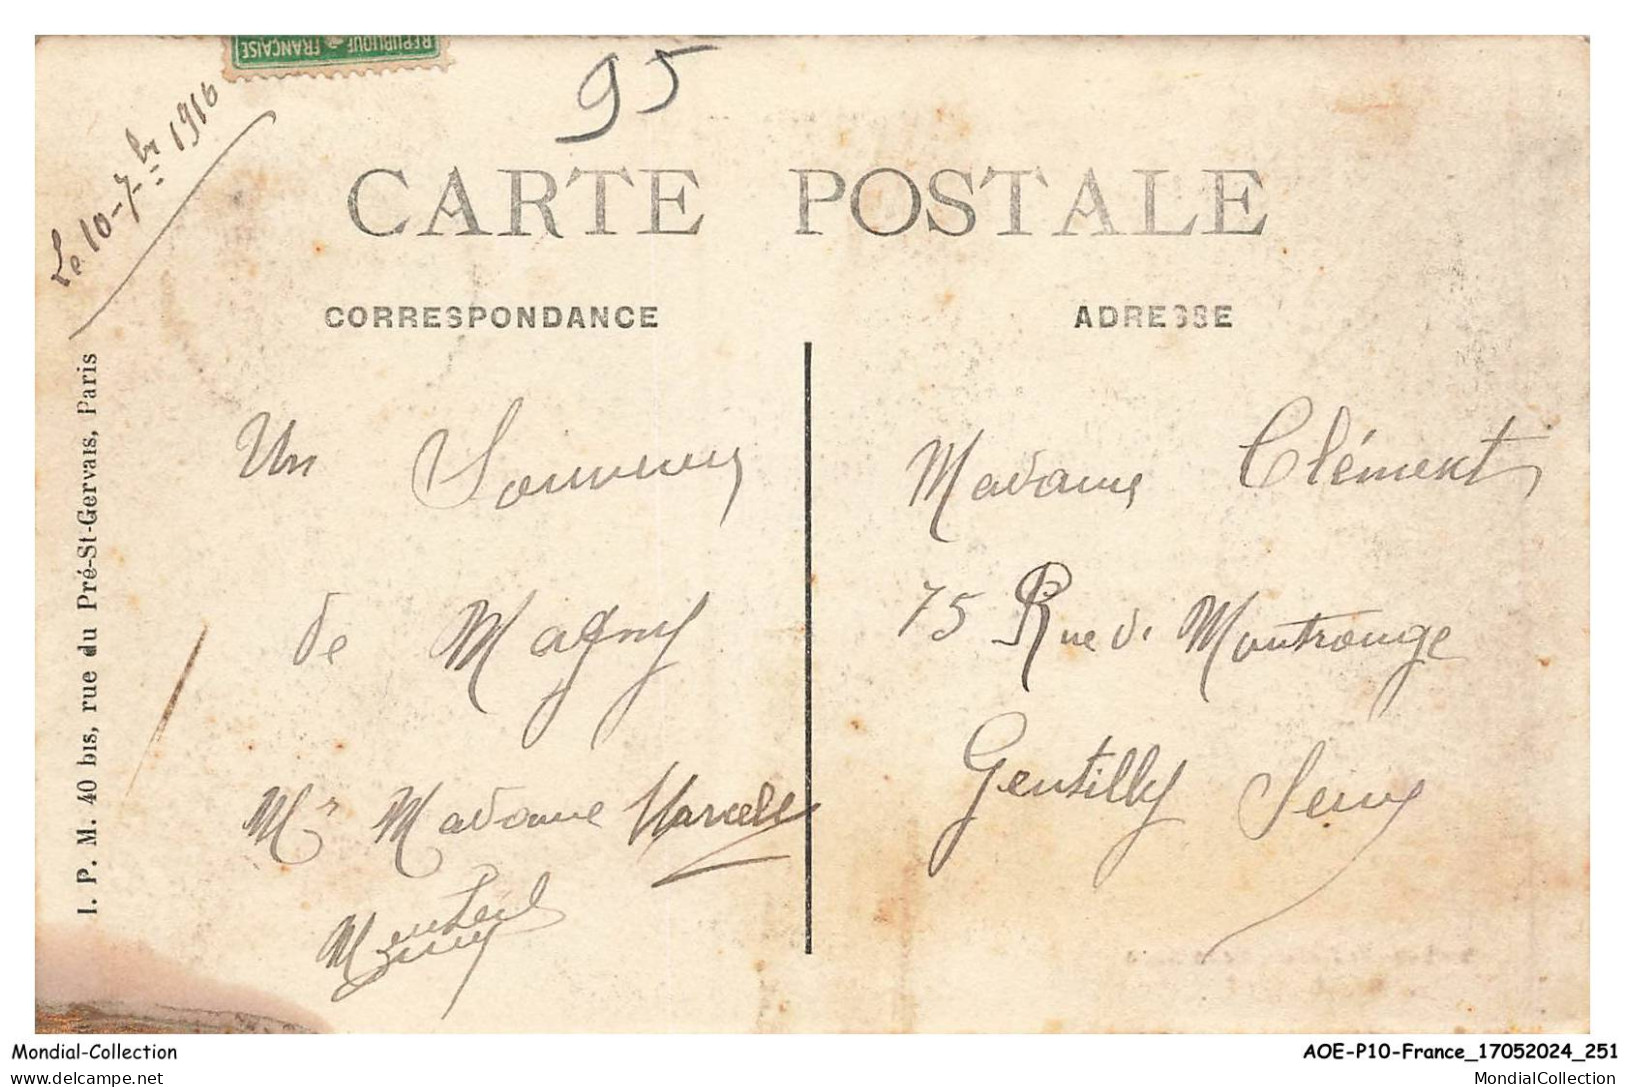 REPUBLIQUE FRANÇAISE
95
Le 10-7-bre 1916
CARTE POSTALE
CORRESPONDANCE
ADRESSE
I. P. M. 40 bis, rue du Pré-St-Gervais, Paris
Un Souvenir
de Magny
Mr Madame Marcelle
Madame Clément
75 Rue de Montrouge
Gentilly Seine
Mondial-Collection
AOE-P10-France_17052024_251
delcampe.net
MondialCollection